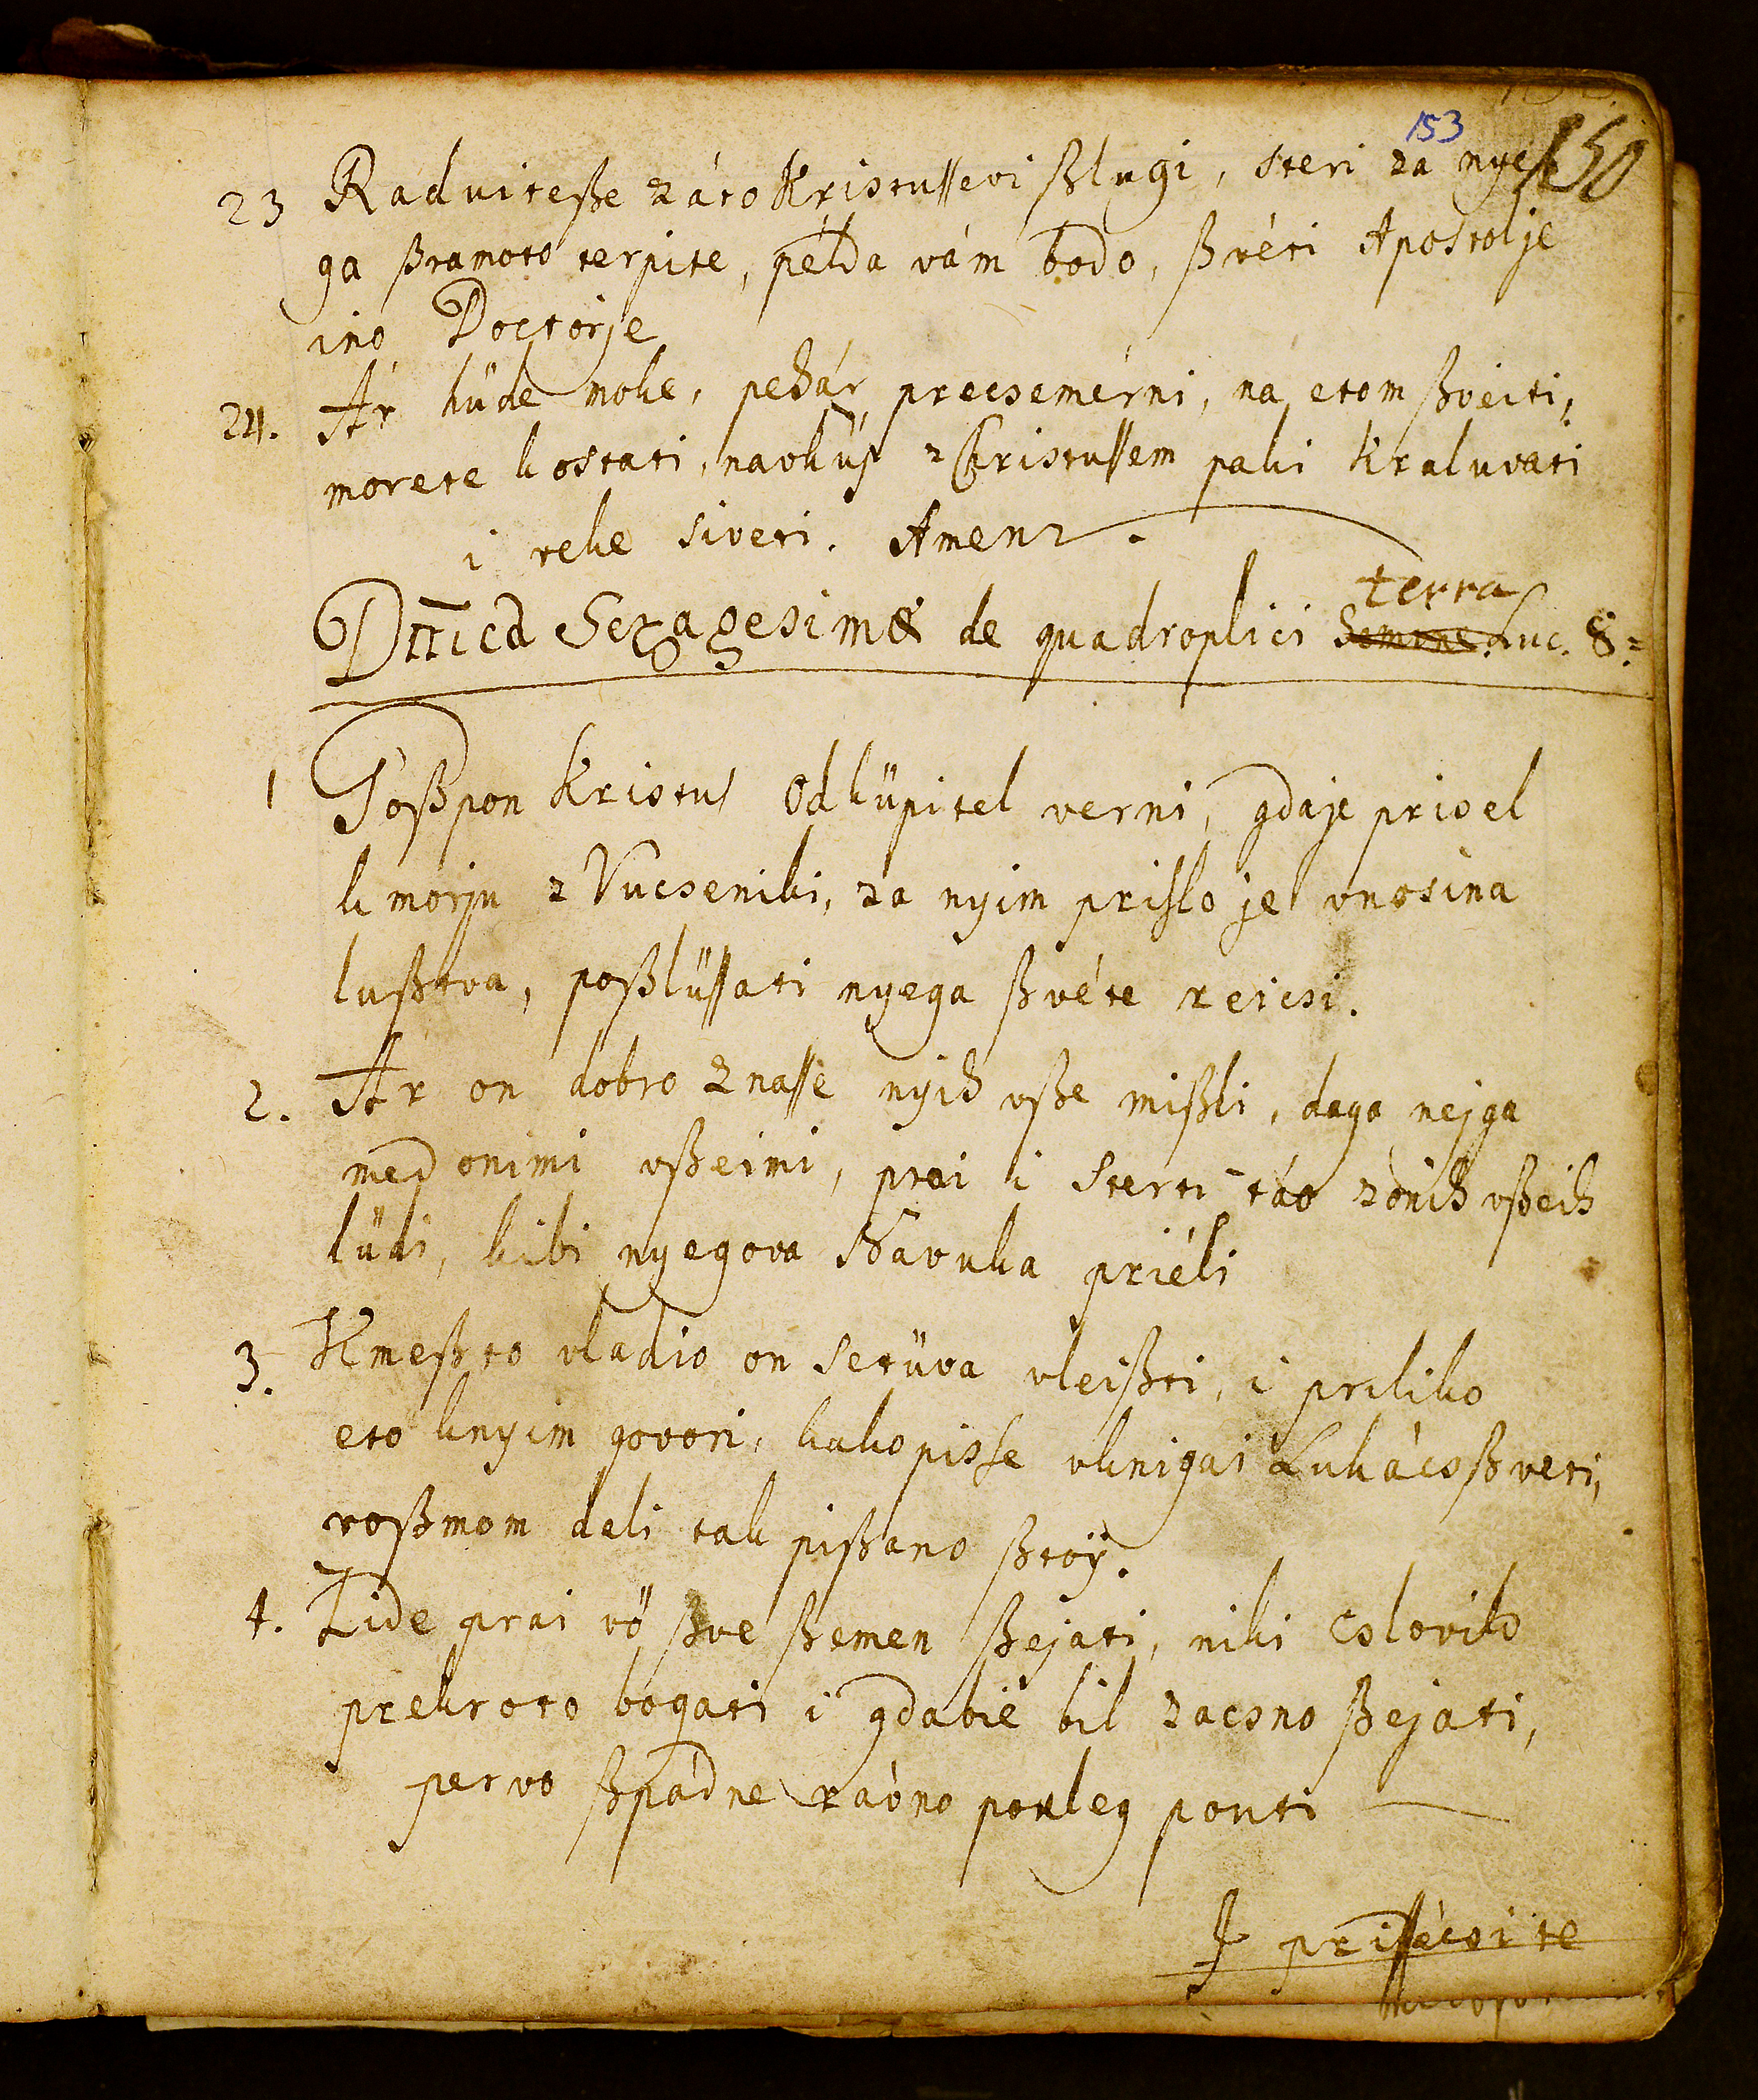 153
150
23 Raduiteße záto Kristuſſevi ßlugi, steri za nye
ga ßramoto terpite, példa vám bodo, ßvéti Apostolje
ino Doctorje
24. Ár hüde moke, pehár precsemérni, na etom ßveiti,
morete kostati, navküp z Christuſſem paki kraluvati
i veke siveti. Amen.
terra
Dñica Sexagesimæ de quadruplici Semine Luc. 8.
1 Goßpon Kristus Odküpitel verni, gdaje prisel
k morju z Vucseniki, za nyim prislo je vnosina
lußtva, poßlüſſati nyega ßvéte reicsi.
2. Ár on dobro znaſſe nyih vße mißli, daga nejga
med onimi vßeimi, prai i sterti táo zonih vßeih
lüdi, kibi nyegova návuka priéli
3. Kmeßto vladio on setüva vleißti, i priliko
eto knyim govori, kako pisſe vknigai Lukács ßveti,
voßmom deli tak pißano ßtoÿ.
4. Zide prai vö ßve ßemen ßejati, niki cslovik
prekroto bogati i gdabié bil zacsno ßejati,
pervo ßpádne ravno poleg pouti
I priſſécsi te